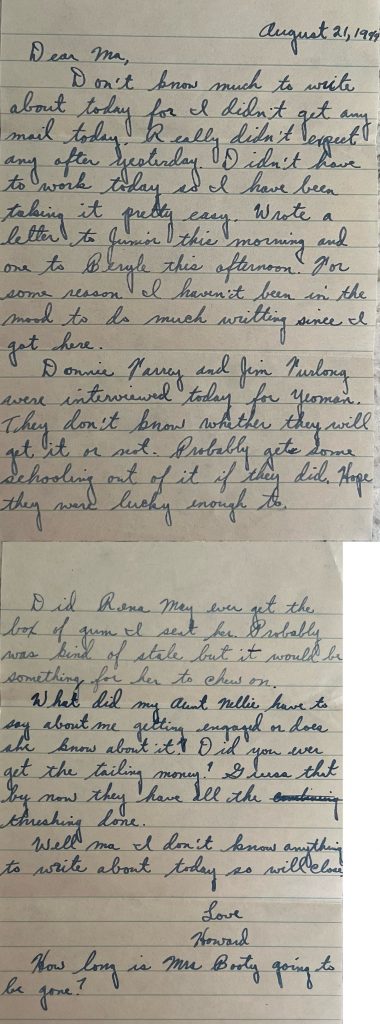 August 21, 1944
Dear Ma,
Don't know much to write
about today for I didn't get any
mail today. Really didn't expect
any after yesterday. Didn't have
to work today so I have been
taking it pretty easy. Wrote a
letter to Junior this morning and
one to Beryle this afternoon. For
some reason I haven't been in the
mood to do much writting since I
got here.
Donnie Varvey and Jim Furlong
were interviewed today for Yeoman.
They don't know whether they will
get it or not. Probably gets some
schooling out of it if they did. Hope
they were lucky enough to.
Did Rena May ever get the
box of gum I sent her. Probably
was kind of stale but it would be
something for her to chew on.
What did my Aunt Nellie have to
say about me getting engaged or does
she know about it? Did you ever
get the tailing money? Guess that
by now they have all the
threshing done.
Well ma I don't know anything
to write about today so will close
Love
Howard
How long is Mrs Booty going to
be gone?